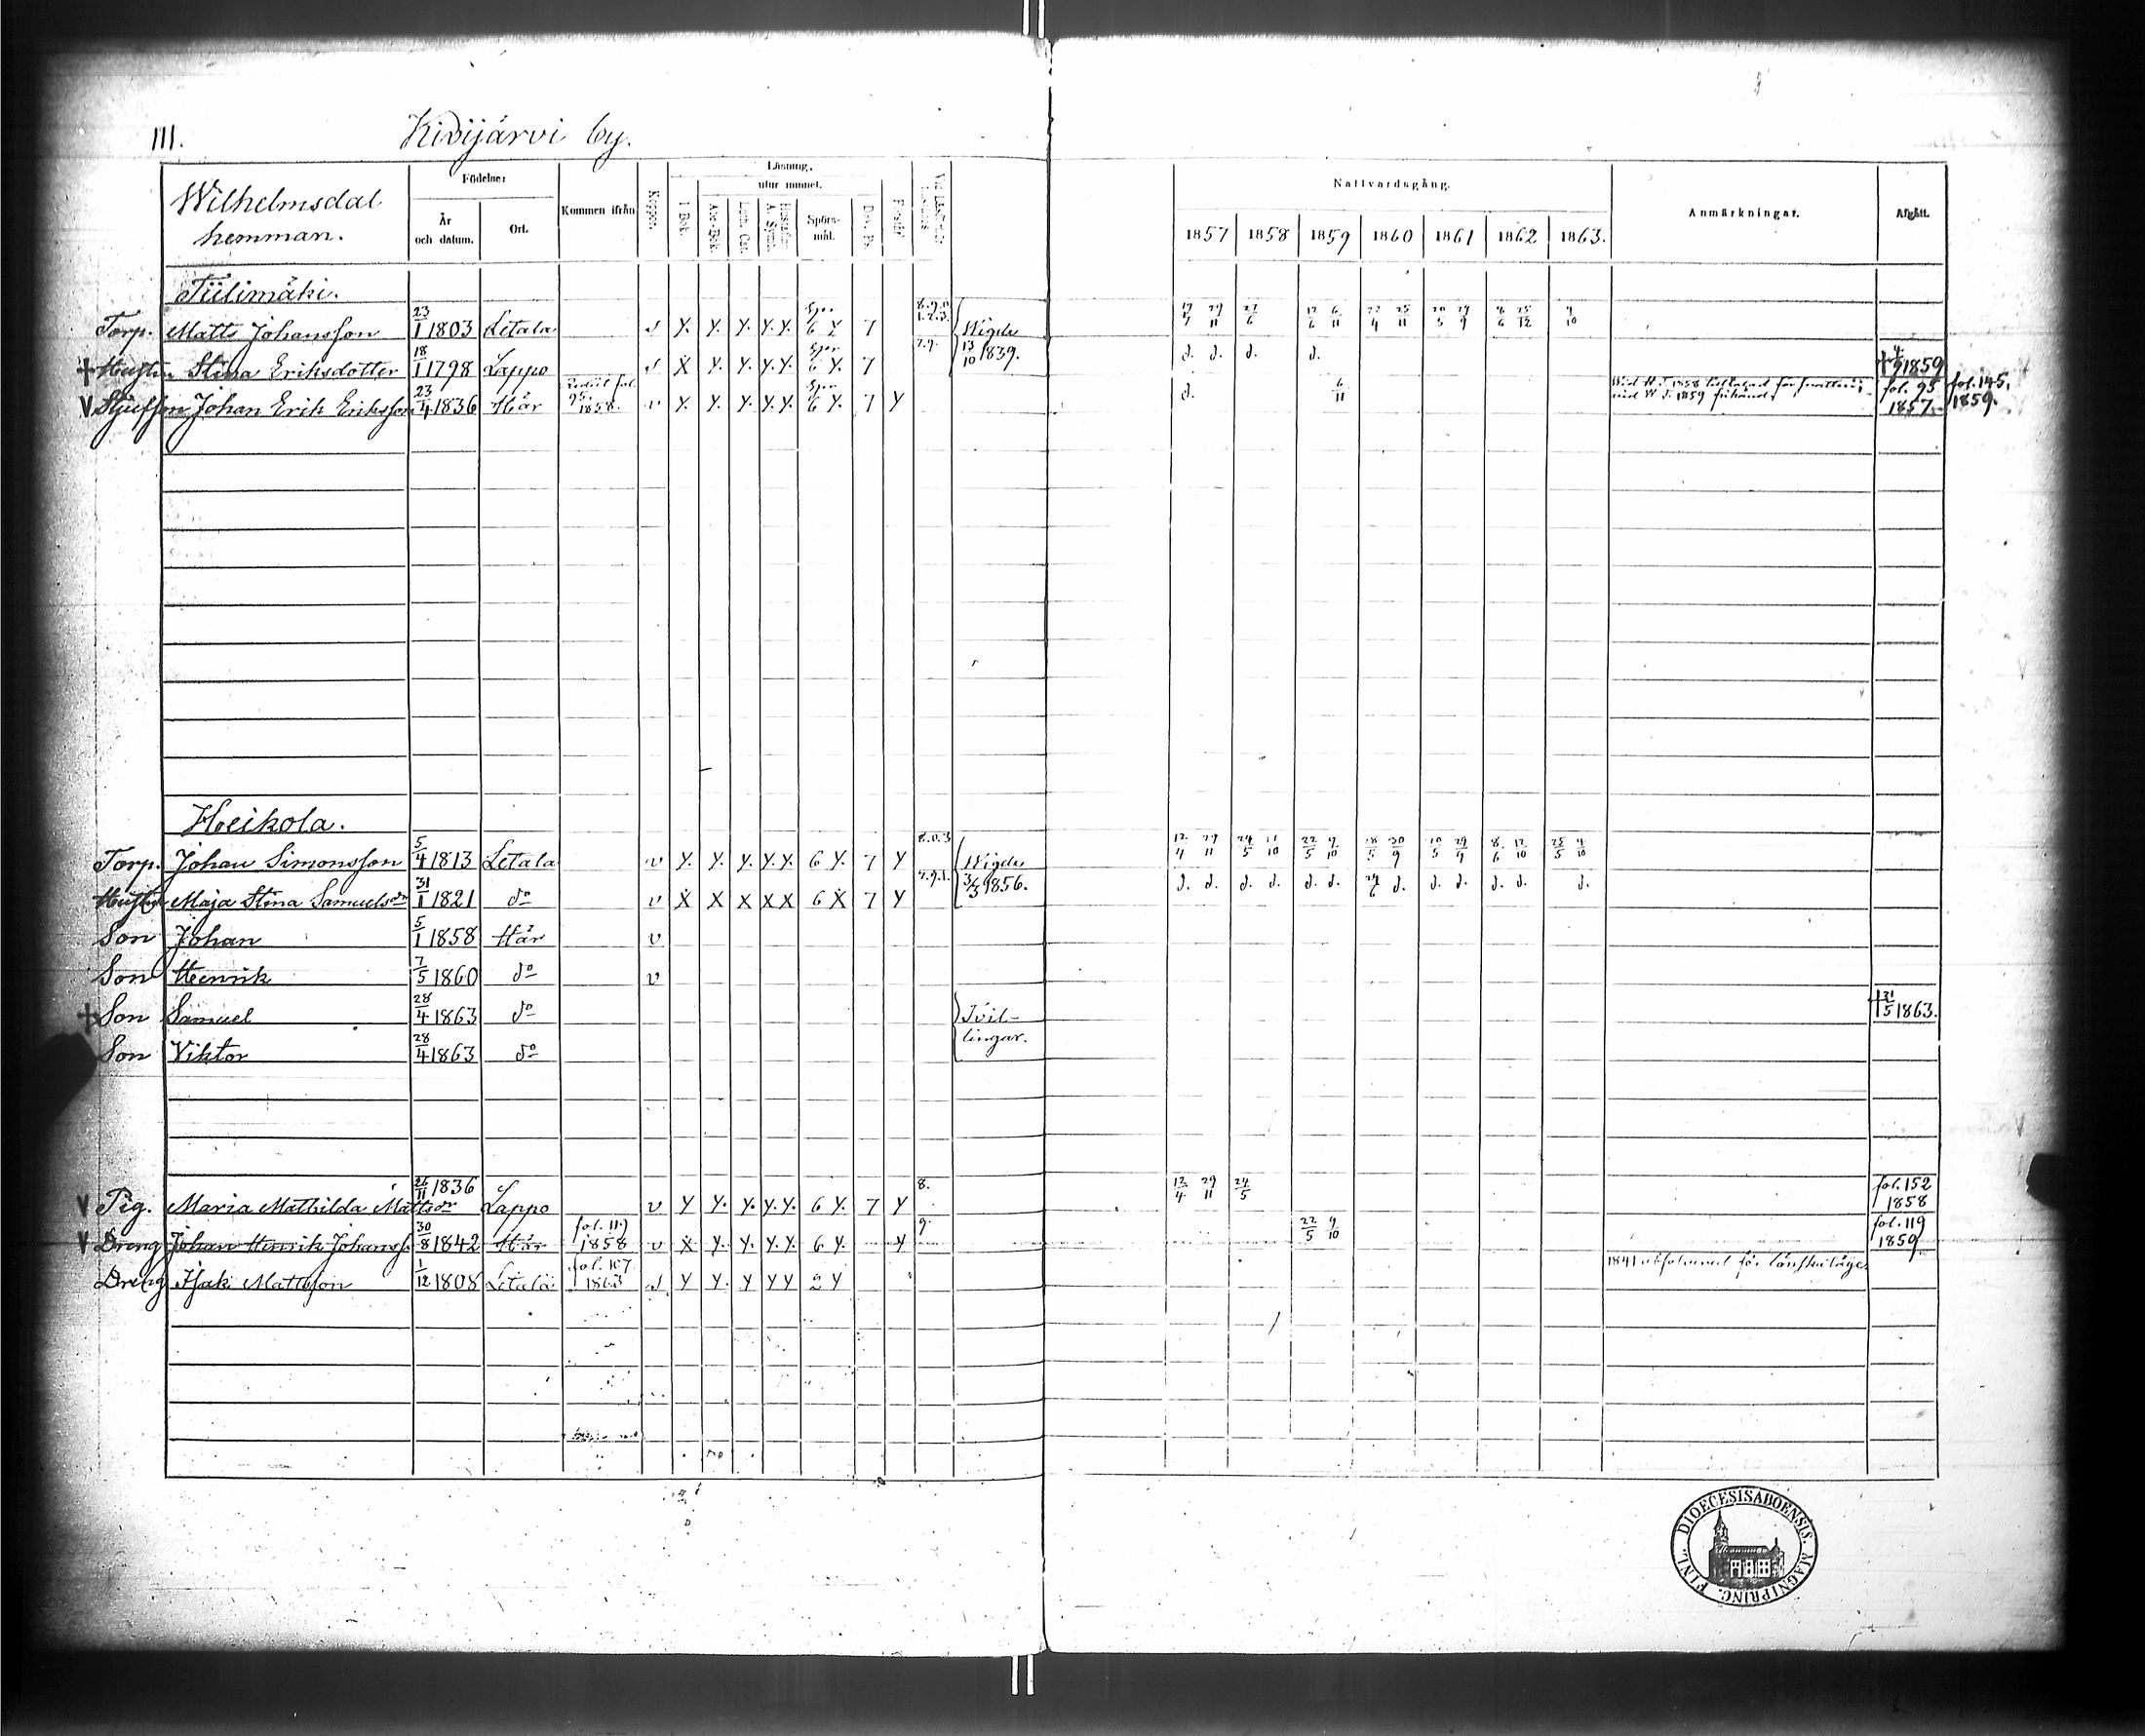 111. Kivijärvi by.
Wilhelmsdal hemman.
Födelse: År och datum. Ort. Kommen ifrån Koppor. Läsning. I Bok. utur minnet. Abc-Bok. Luth. Cat. Hustafla A. Symb. Spörs-mål. Dav. Ps. Förstår Nattvardsgång. 1857 1858 1859 1860 1861 1862 1863. Anmärkningar. Afgått.
Tiilimäki.
Torp. Matts Johansson 23/1 1803 Letala s y. y. y. y. y. Spr 6 y 7 8.9.0 1.2.3. Wigde 13/10 1839. 29/11 27/6 12/6 6/11 22/4 25/11 20/5 29/9 8/6 25/12 4/10
† Hustru Stina Eriksdotter 18/1 1798 Lappo s x y. y. y. y. Spr 6 y. 7 7.9. d. d. d. d. † 1859
V Stjufson Johan Erik Eriksson 23/4 1836 Här fol. 95. 1858. v y. y. y. y. y. Spr 6 y. 7 y d. 6/11 1858 1859 fol. 95 1857. fol. 145. 1859.
Heikola.
Torp. Johan Simonsson 5/4 1813 Letala v y. y. y. y. y. 6 y. 7 y 8.0.3 Wigde 3/3 1856. 12/4 29/11 24/5 11/10 22/5 9/10 18/5 30/9 10/5 29/9 8/6 12/10 25/5 4/10
Hustru Maja Stina Samuelsdr 31/1 1821 do v x x x x x 6 x 7 y 7.9.1. d. d. d. d. d. d. 24/6 d. d. d. d. d. d.
Son Johan 5/1 1858 Här v
Son Henrik 7/5 1860 do v
† Son Samuel 28/4 1863 do Tvil- † 31/5 1863.
Son Viktor 28/4 1863 do lingar.
V Pig. Maria Mathilda Mattsdr 26/11 1836 Lappo v y y. y. y. y. 6 y. 7 y 8. 12/4 29/11 24/5 fol. 152 1858
V Dreng Johan Henrik Johanss. 30/8 1842 Här fol. 119 1858 v x y. y. y. y. 6 y. y 9. 22/5 9/10 fol. 119 1859
Dreng Isak Mattsson 1/12 1808 Letala fol. 107 1863 s y y. y y y 2 y 1841 för lönskaläge.
FINL. DIOECESIS ABOENSIS. MAGNI PRINC.